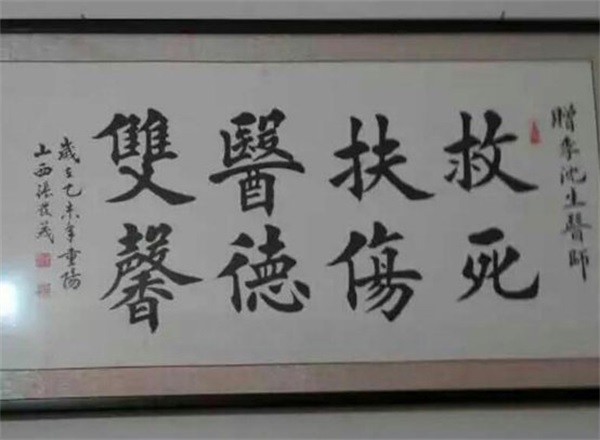 贈李池生醫師
救死
扶傷
醫德
雙馨
歲在乙未年重陽
山西張